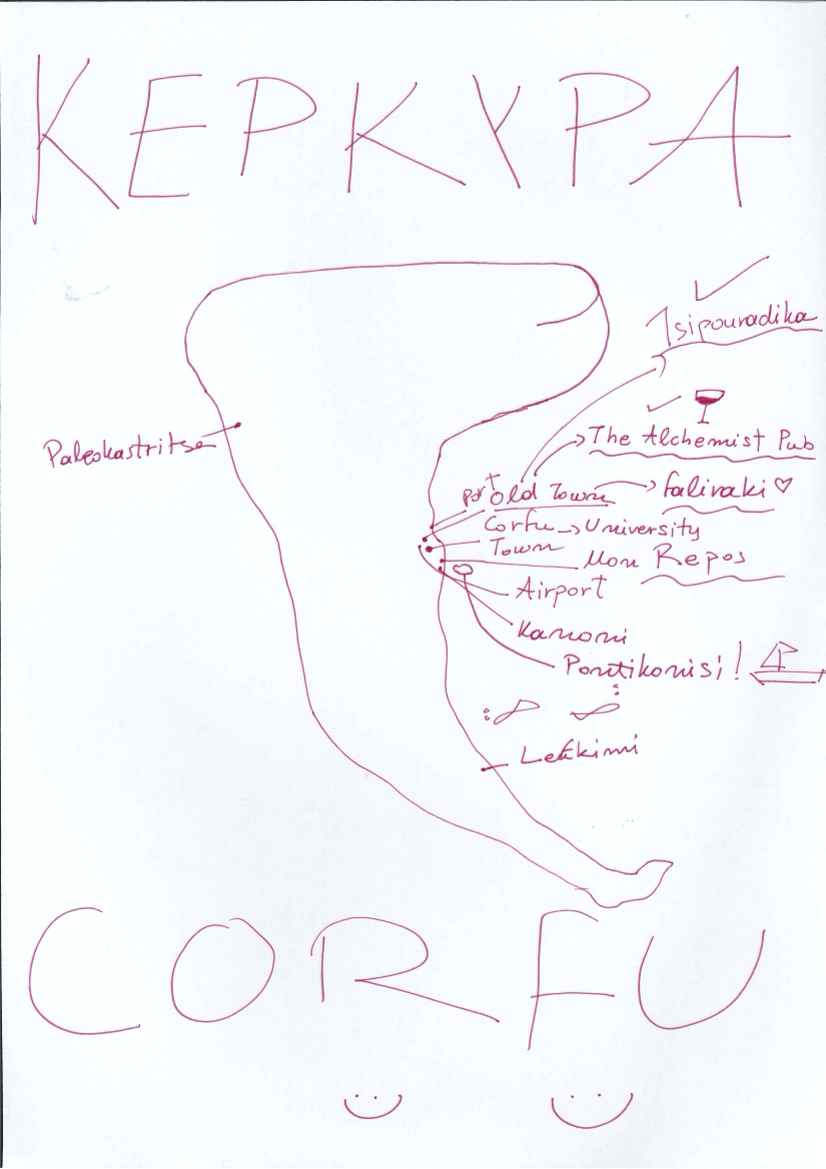 ΚΕΡΚΥΡΑ
Tsipouradika
The Alchemist Pub
Paleokastritsa
Port Old Town → faliraki ♡
Corfu → University
Town
Mon Repos
Airport
Kanoni
Pontikonisi!
Lefkimi
CORFU